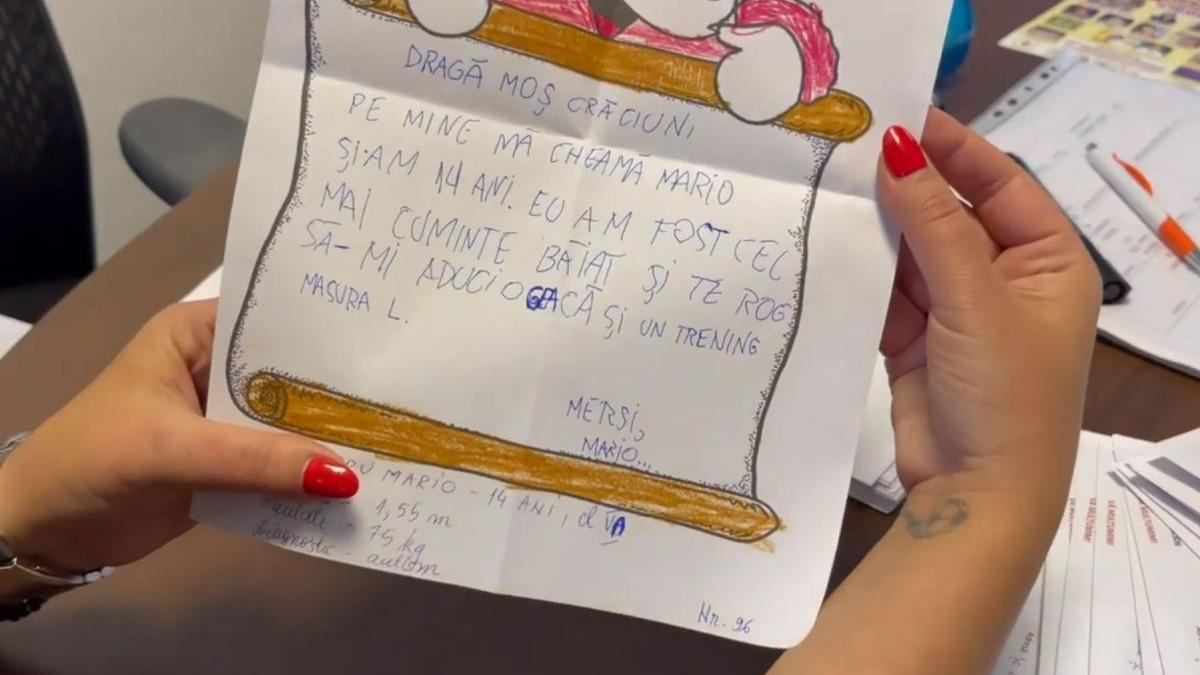 DRAGĂ MOȘ CRĂCIUN,
PE MINE MĂ CHEAMĂ MARIO
ȘI-AM 14 ANI. EU AM FOST CEL
MAI CUMINTE BĂIAT ȘI TE ROG
SĂ-MI ADUCI O GEACĂ ȘI UN TRENING
MASURA L.
MERSI,
MARIO...
MARIO - 14 ANI, cl VA
- 1,55 m
75 kg
diagnostic - autism
Nr. 96